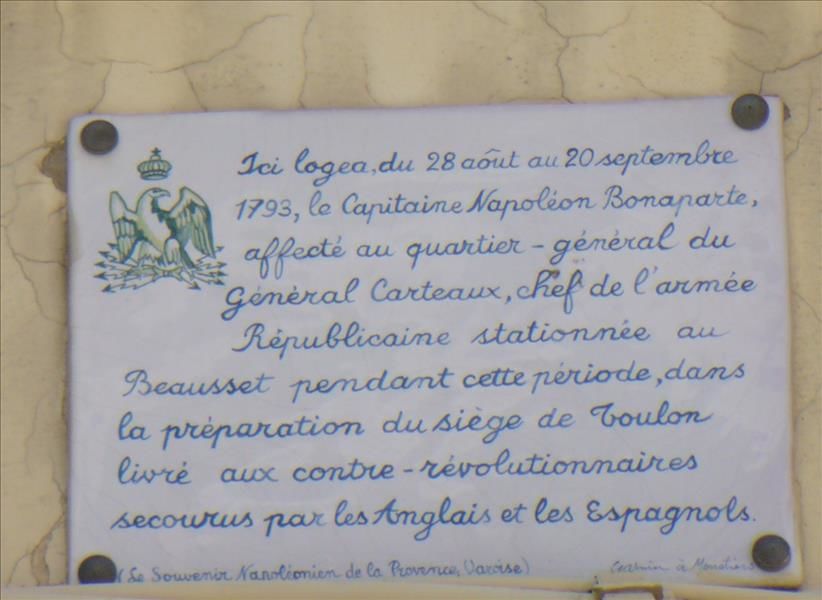 Ici logea, du 28 aôut au 20 septembre
1793, le Capitaine Napoléon Bonaparte,
affecté au quartier - général du
Général Carteaux, chef de l'armée
Républicaine stationnée au
Beausset pendant cette période, dans
la préparation du siège de Toulon
livré aux contre - révolutionnaires
secourus par les Anglais et les Espagnols.
(Le Souvenir Napoléonien de la Provence, Varoise)
à Moustiers